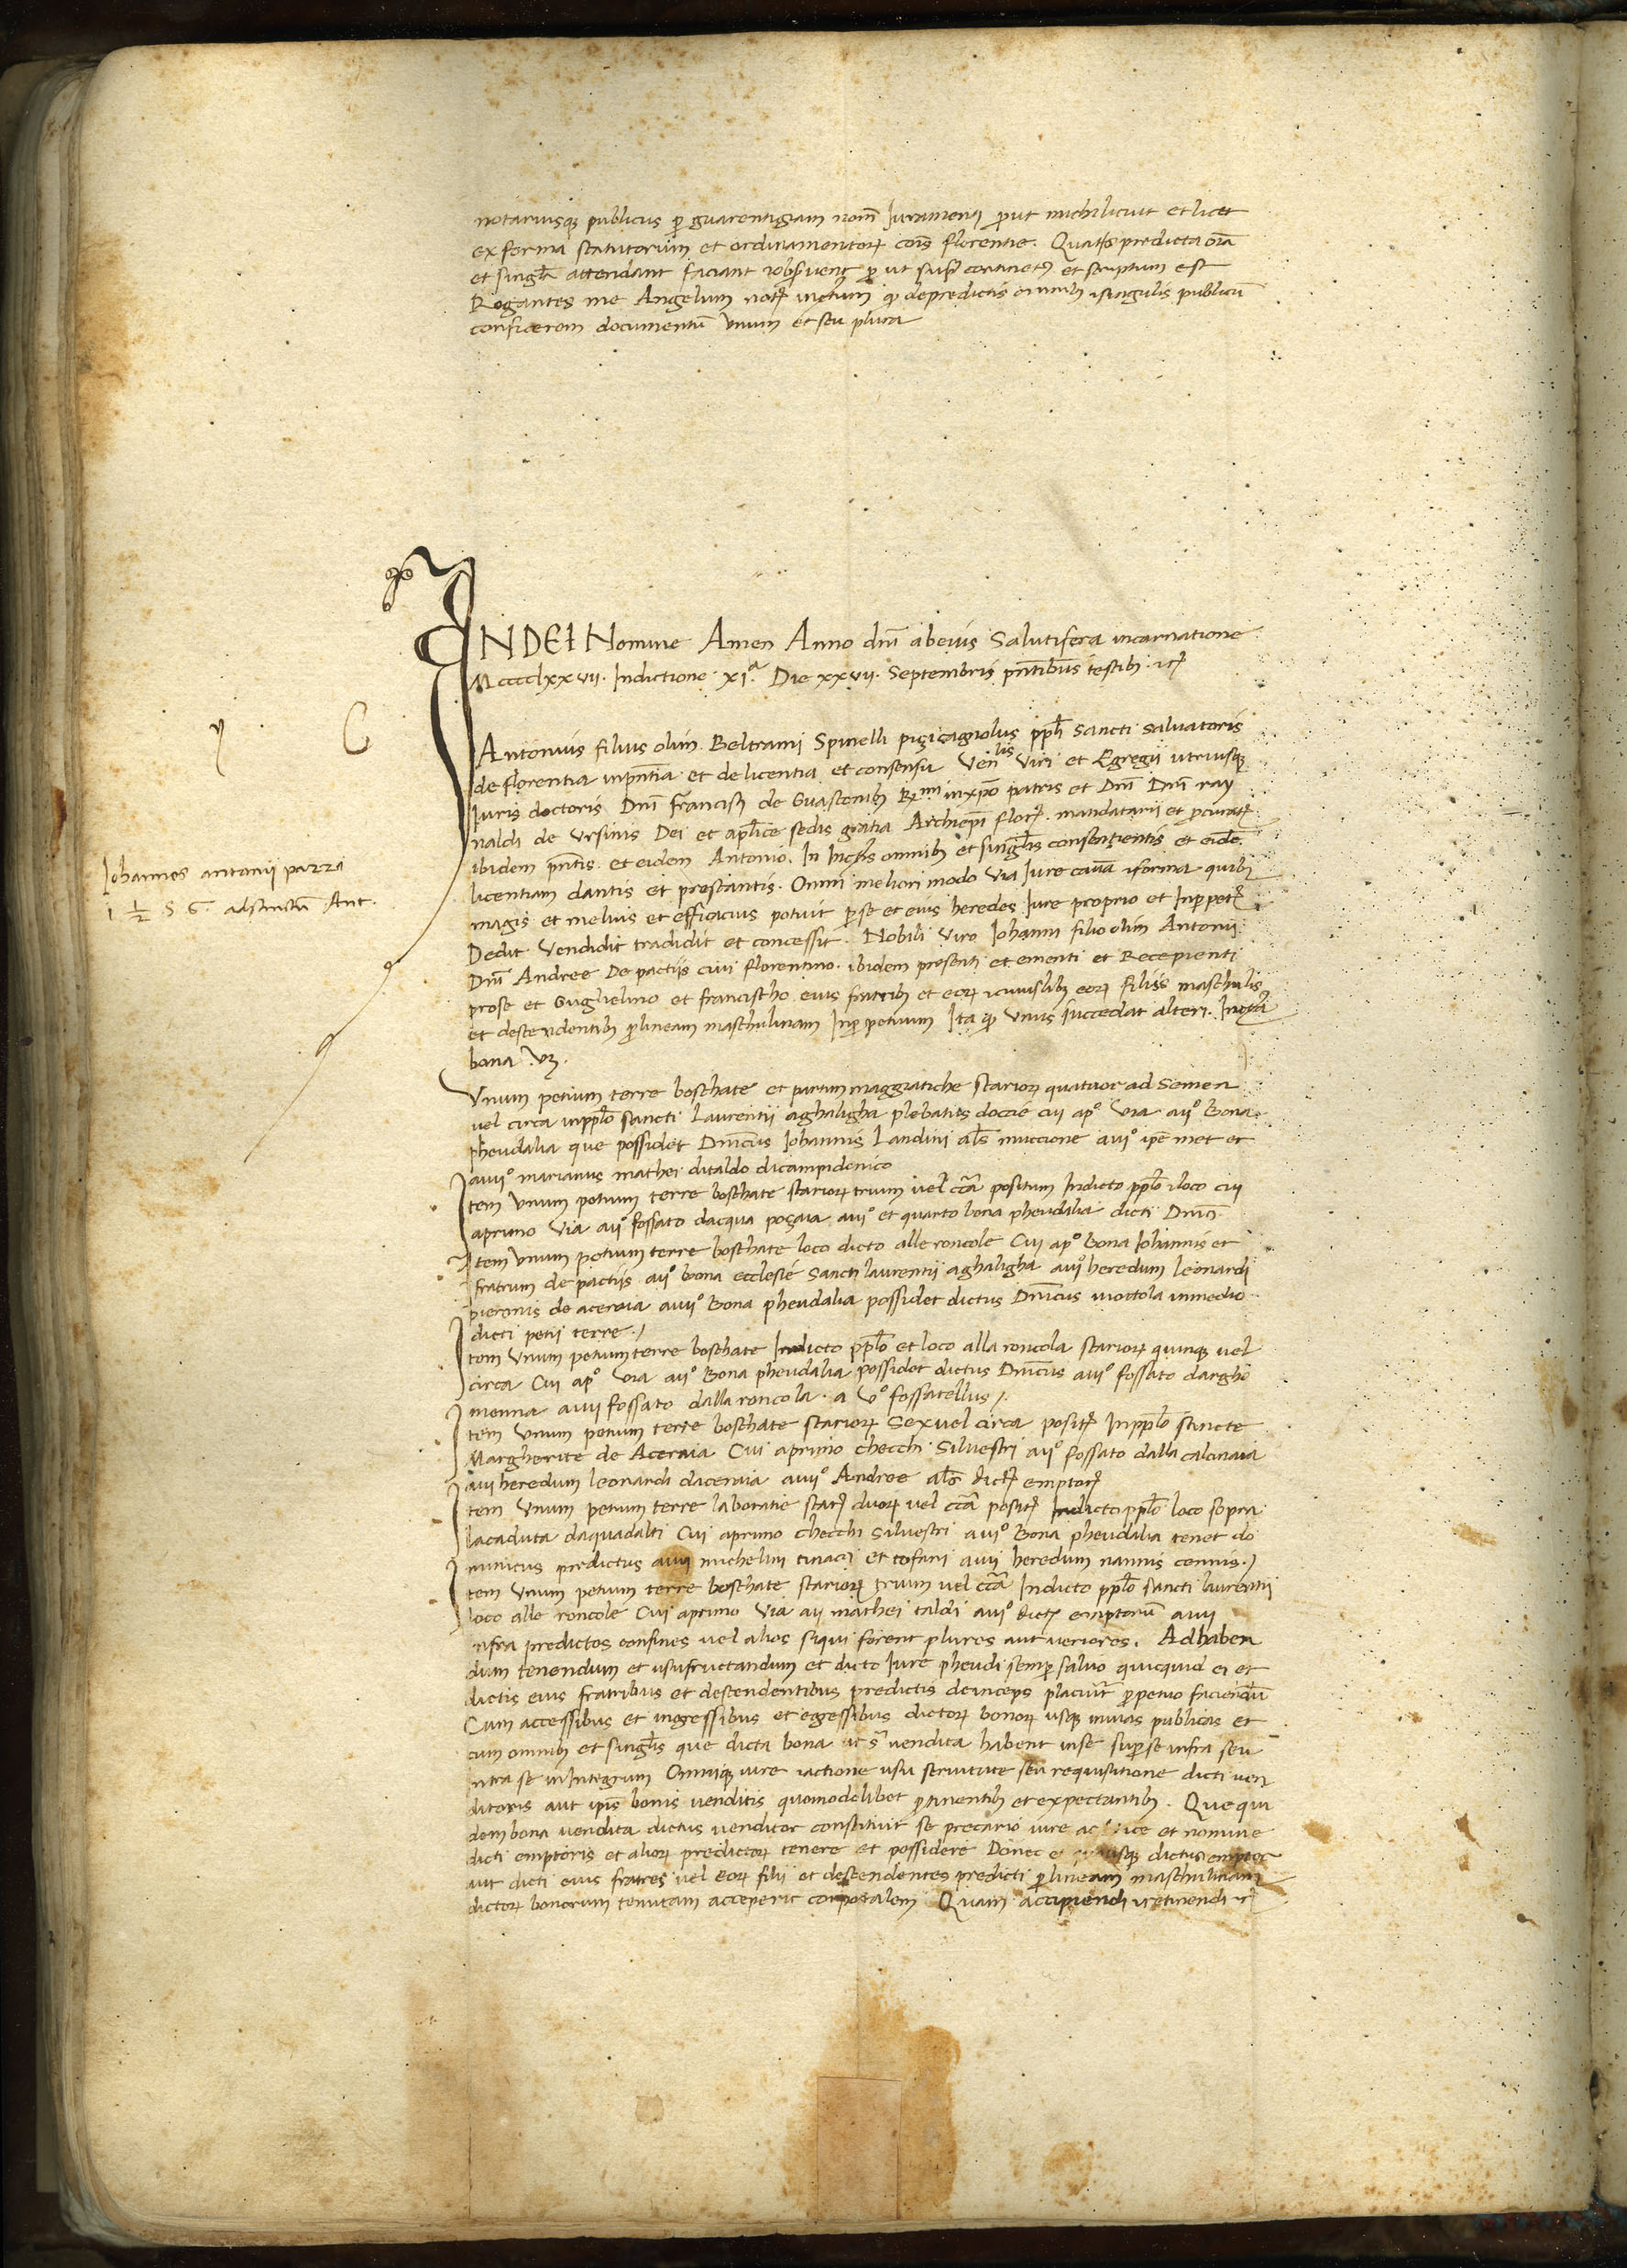 notariusq publicus p guarentigiam nom Juramenti p ut michi licuit et licet
ex forma statutorum et ordinamentor cois florentie. Quatus predicta oia
et singla attendant faciant et obsvent p ut supra continet et scriptum est
Rogantes me Angelum not q de predictis omnib et singulis publicu
conficerem documentu unum et seu plura
IN DEI Nomine Amen Anno dni ab eius Salutifera incarnatione
Mcccclxxvii. Indictione xi.a Die xxvii. Septembris pntibus testib. etc
Antonius filius olim Beltrami Spinelli piçicagnolus ppli Sancti Salvatoris
de florentia in pntia et de licentia et consensu Venlis Viri et Egregii utriusq
Iuris doctoris Dni Francisci de Guasconib Rmi in xpo patris et Dni Dni ray
naldi de Ursinis Dei et aplice sedis gratia Archiepi flor. mandatarii et procurat
ibidem pntis et eidem Antonio. In infrs omnib et singlis consentientis et eide
Iohannes antonii pazzi
licentiam dantis et prestantis. Omni meliori modo via Jure causa et forma quib
1 ½ S G. ad sanctu Ant.
magis et melius et efficacius potuit p se et eius heredes Jure proprio et In ppet
Dedit Vendidit tradidit et concessit. Nobili Viro Iohanni filio olim Antonii
Dni Andree De pactiis civi florentino. ibidem presenti et ementi et Recepienti
pro se et Guglielmo et francischo eius fratrib et eor et cuiuslib eor filiis maschulis
et descendentib p lineam maschulinam In ppetuum Ita q unus succedat alteri. Infra
bona vz.
Unum petium terre boschate et partim maggiatiche starior quatuor ad Semen
vel circa in pplo sancti Laurentii aghaligha plebatus doccie cui ap° via aii° Bona
pheudalia que possidet Dnicus Iohannis Landini als muccione aiii° ipe met et
aiiii° marianus mathei ditaldo dicampidonico
Item Unum petium terre boschate starior trium vel cca positum In dicto pplo et loco cui
a primo Via aii° fossato dacqua poçaia aiii° et quarto bona pheudalia dicti Dnici
Item Unum petium terre boschate loco dicto alle roncole Cui ap° Bona Iohannis et
fratrum de pactiis aii° bona ecclesie Sancti laurentii aghaligha aiii° heredum leonardi
pieronis de aceraia aiiii° Bona pheudalia possidet dictus Dnicus in medio
dicti petii terre./
Item Unum petium terre boschate In dicto pplo et loco alla roncola starior quinq vel
circa Cui ap° Via aii° Bona pheudalia possidet dictus Dnicus aiii° fossato darghi
menna aiiii fossato dalla roncola. a v° fossatellus/.
Item Unum petium terre boschate starior Sex vel circa posit In pplo sancte
Margherite de Aceraia Cui a primo checchi Silvestri aii° fossato dalla calcinaia
aiii heredum leonardi daceraia aiiii° Andree als dict emptor
Item Unum petium terre laboratie star duor vel cca posit In dicto pplo loco sopra
lacaduta daquadalti Cui a primo checchi Silvestri aii° Bona pheudalia tenet do
minicus predictus aiii michelini tinacci et tofani aiiii heredum nannis cennis./
Item Unum petium terre boschate starior trium vel cca In dicto pplo sancti laurentii
loco alle roncole Cui a primo Via aii mathei taldi aiii° dict emptoru aiiii
infra predictos confines vel alios siqui forent plures aut veriores. Ad haben
dum tenendum et usufructandum et dicto Iure pheudi semp salvo quicquid ei et
dictis eius fratribus et descendentibus predictis deinceps placuit ppetuo faciendu
Cum accessibus et ingressibus et egressibus dictor bonor usq in vias publicas et
cum omnib et singlis que dicta bona ut s vendita habent in se sup se infra seu
intra se in Integrum Omniq iure et actione usu servitute seu requisitione dicti ven
ditoris aut ipis bonis venditis quomodolibet ptinentib et expectantib. Que qui
dem bona vendita dictus venditor constituit se precario iure ac vice et nomine
dicti emptoris et alior predictor tenere et possidere Donec et dictus emptor
aut dicti eius fratres vel eor filii et descendentes predicti p lineam maschulinam
dictor bonorum tenutam acceperit corporalem Quam accipiendi et retinendi etc